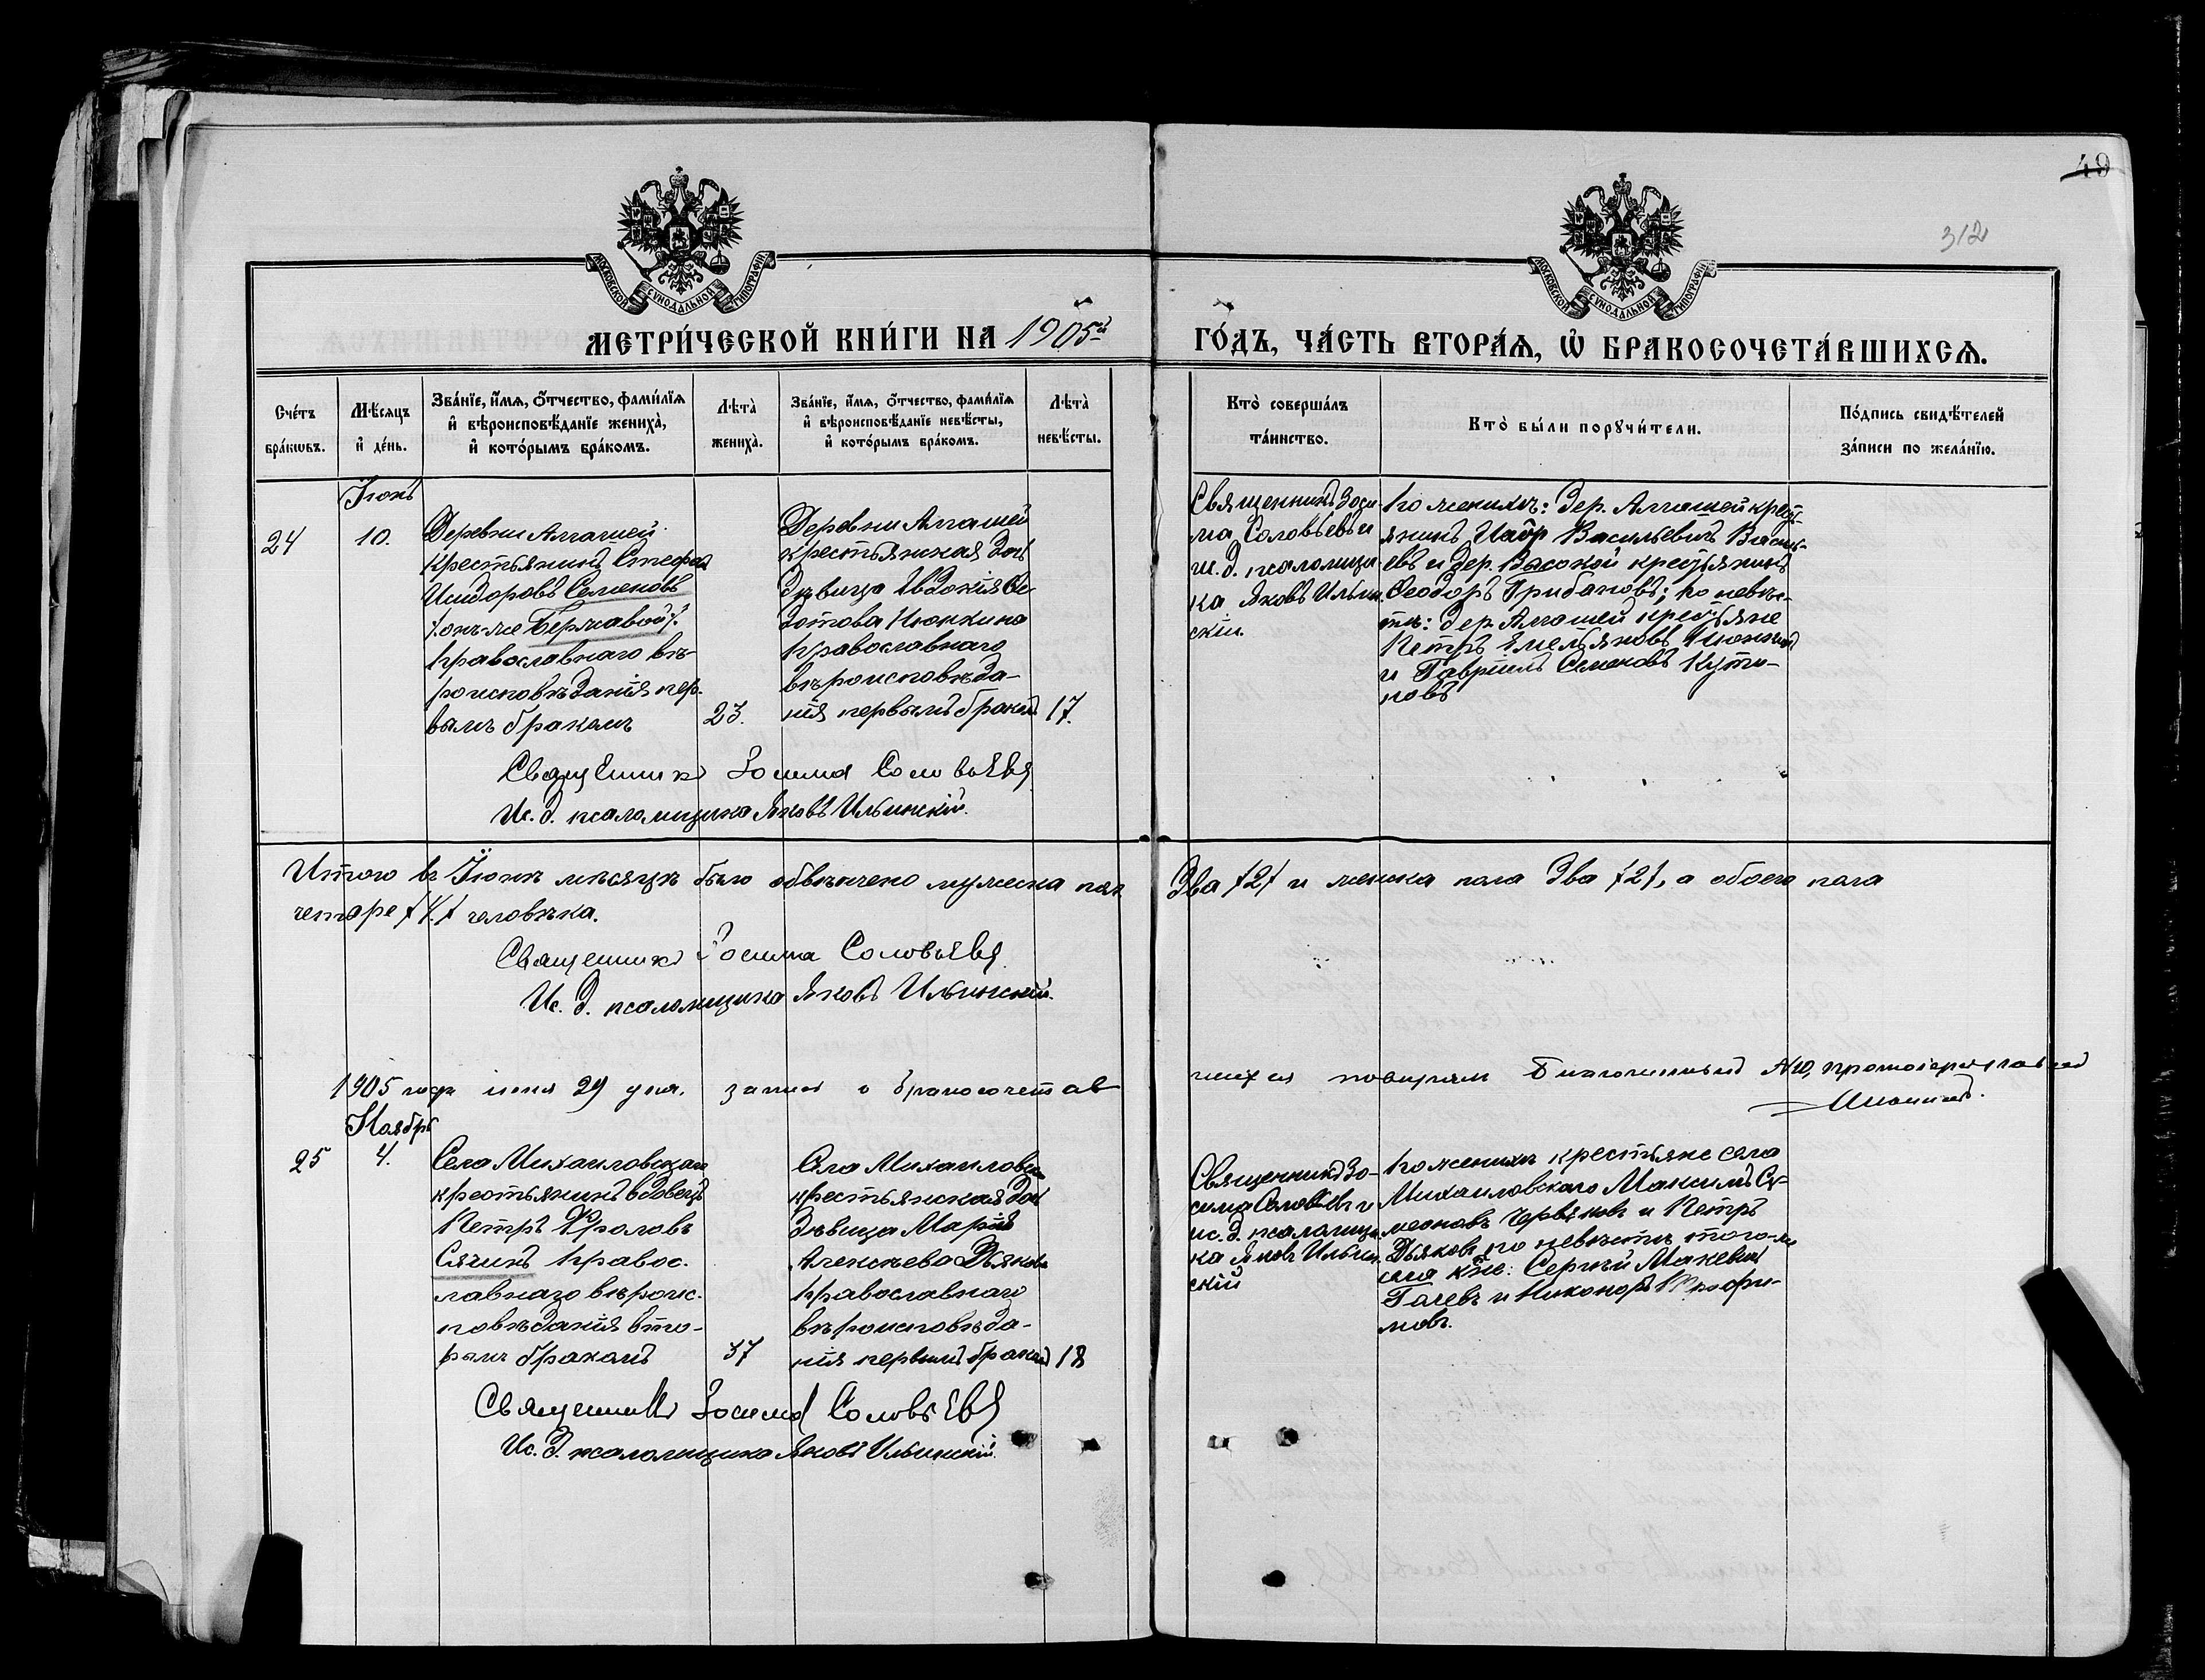 49
312
МОСКОВСКОЙ СѴНОДАЛЬНОЙ ТИПОГРАФІИ
МОСКОВСКОЙ СѴНОДАЛЬНОЙ ТИПОГРАФІИ
МЕТРИ́ЧЕСКОЙ КНИ́ГИ НА 1905й ГО́ДЪ, ЧА́СТЬ ВТОРА́Ѧ, Ѽ БРАКОСОЧЕТА́ВШИХСѦ.
Счéтъ
брáкѡвъ.
Мѣ́сяцъ
и҆ дéнь.
Звáнїе, и҆́мѧ, ѻ҆́тчество, фамѝлїѧ
и҆ вѣроисповѣ́данїе женихà,
и҆ котóрымъ брáкомъ.
Лѣ́та̀
женихà.
Звáнїе, и҆́мѧ, ѻ҆́тчество, фамѝлїѧ
и҆ вѣроисповѣ́данїе невѣ́сты,
и҆ котóрымъ брáкомъ.
Лѣ́та̀
невѣ́сты.
Ктò совершáлъ
тáинство.
Ктò бы́ли порꙋчи́тели.
Пóдпись свидѣ́телей
зáписи по желáнїю.
Іюнь
24
10.
Деревни Алгашей
крестьянинъ Стефан
Исидоровъ Семеновъ
православнаго вѣ-
роисповѣданія пер-
вымъ бракомъ
23.
Деревни Алгашей
крестьянская доч
дѣвица Евдокія Ѳе
дотова Июнкина
православнаго
вѣроисповѣда-
нія первымъ бракомъ
17.
Священникъ Зоси
ма Соловьевъ и
и. д. псаломщи
ка Яковъ Ильин
скій.
По женихѣ: дер. Алгашей крест-
янинъ Васильевъ Василь-
евъ и дер. Высокой крестьянинъ
Ѳеодоръ Грибановъ; по невѣс-
тѣ: дер. Алгашей крестьяне
Петръ Емельяновъ Июнкинъ
и Гавріилъ Семеновъ
Священникъ Зосима Соловьевъ
Ис. д. псаломщика Яковъ Ильинскій.
Итого въ Іюнѣ мѣсяцѣ было обвѣнчено мужска пол два /2/ и женска пола два /2/, а обоего пола
четыре /4/ человѣка.
Священникъ Зосима Соловьевъ
Ис. д. псаломщика Яковъ Ильинскій.
1905 года 29 дня. записи о бракосочетав шихся Благочинный
Ноябрь
25
4.
Села Михаиловскаго
крестьянинъ вдовецъ
Петръ Фроловъ
Сячинъ правос-
лавнаго вѣроис-
повѣданія вто-
рымъ бракомъ
37
Села Михаиловска
крестьянская доч
дѣвица Марія
Алексѣева Дьякова
православнаго
вѣроисповѣда-
нія первымъ бракомъ
18
Священникъ Зо-
сима Соловьевъ и
ис. д. псаломщи
ка Яковъ Ильин
скій
По женихѣ крестьяне села
Михаиловскаго Максимъ Си-
меоновъ Червяковъ и Петръ
Дьяковъ, по невѣстѣ того-же
села кр-не: Сергѣй Макевичъ
Гачевъ и Никоноръ Трофи-
мовъ.
Священникъ Зосима Соловьевъ
Ис. д. псаломщика Яковъ Ильинскій.